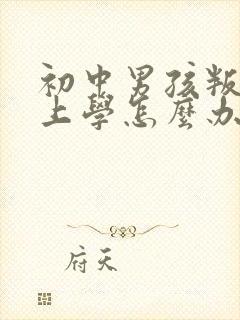 初中男孩叛
上學怎麼办
府天